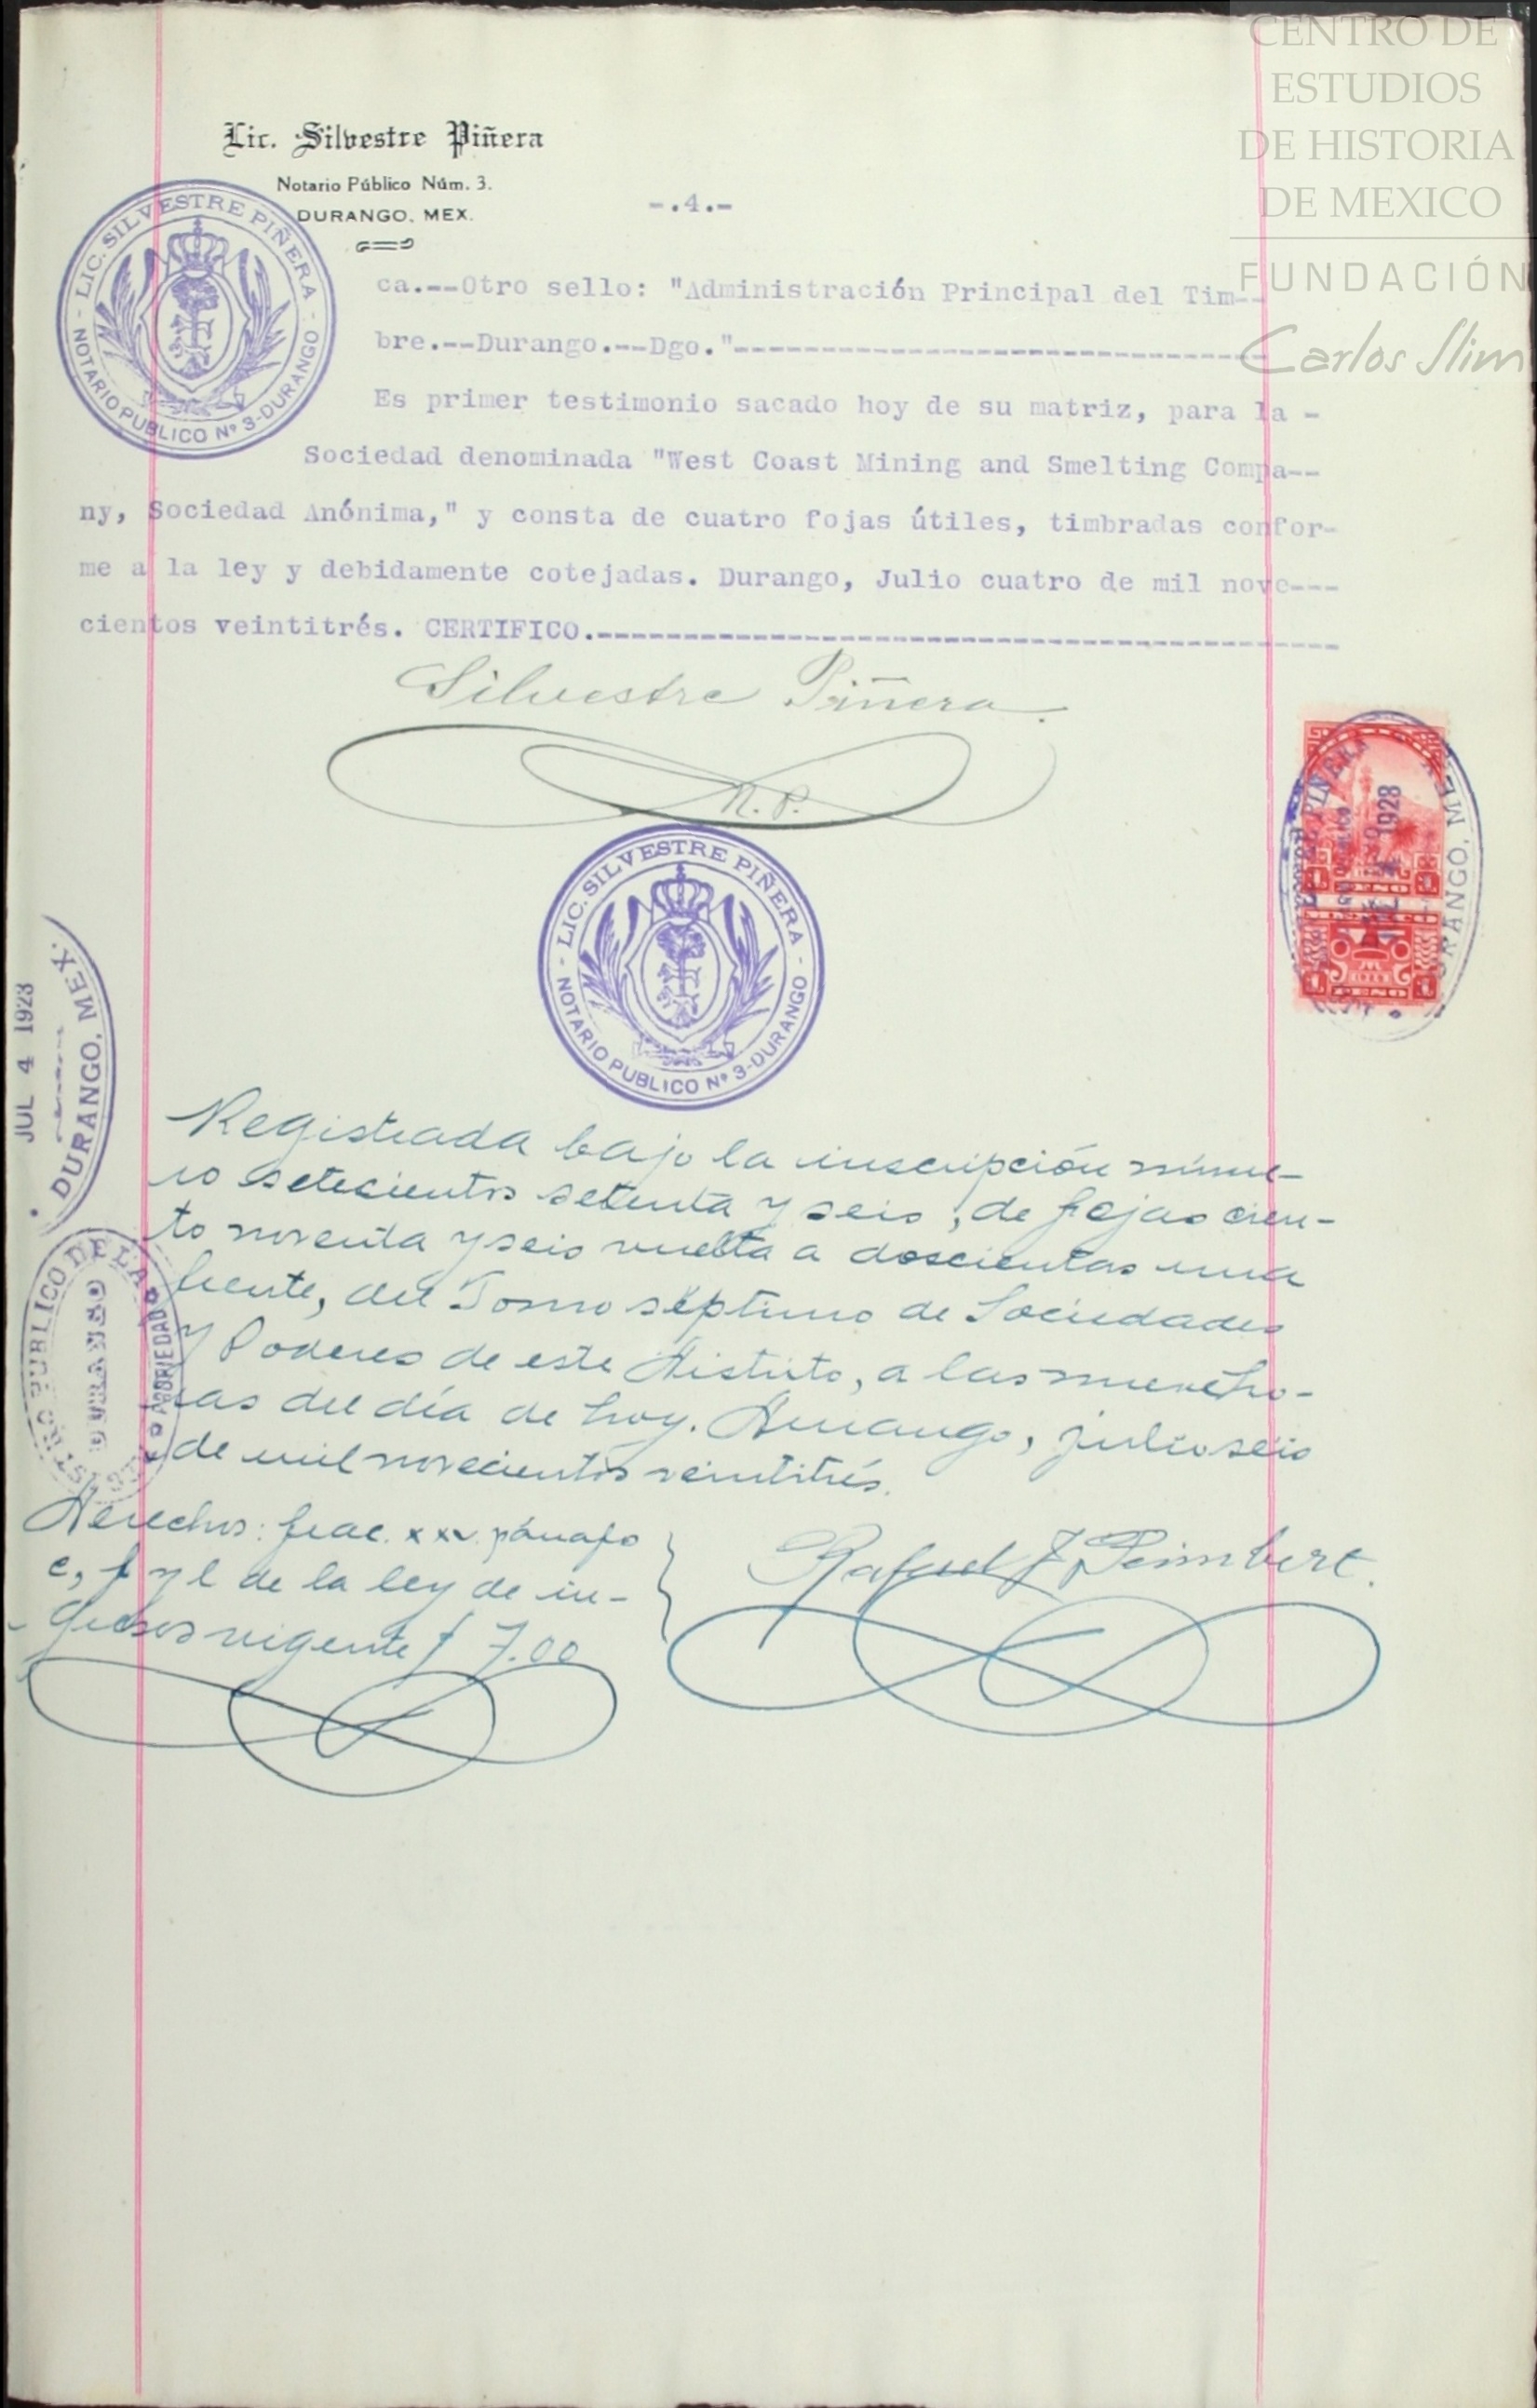 CENTRO DE
ESTUDIOS
DE HISTORIA
DE MEXICO
FUNDACIÓN
Carlos Slim
Lic. Silvestre Piñera
Notario Público Núm. 3.
DURANGO, MEX.
-.4.-
LIC. SILVESTRE PIÑERA - NOTARIO PUBLICO Nº 3-DURANGO -
ca.--Otro sello: "Administración Principal del Tim--
bre.--Durango.--Dgo."------------------------------
Es primer testimonio sacado hoy de su matriz, para la -
Sociedad denominada "West Coast Mining and Smelting Compa--
ny, Sociedad Anónima," y consta de cuatro fojas útiles, timbradas confor-
me a la ley y debidamente cotejadas. Durango, Julio cuatro de mil nove---
cientos veintitrés. CERTIFICO.------------------------------------------
Silvestre Piñera.
N. P.
LIC. SILVESTRE PIÑERA - NOTARIO PUBLICO Nº 3-DURANGO -
PIÑERA
1928
DURANGO, MEX.
UN PESO
JUL 4 1923
DURANGO, MEX.
Registrada bajo la inscripción núme-
ro setecientos setenta y seis, de fojas cien-
to noventa y seis vuelta a doscientas una
frente, del Tomo séptimo de Sociedades
y Poderes de este Distrito, a las nueve ho-
ras del día de hoy. Durango, julio seis
de mil novecientos veintitrés.
PUBLICO DE LA PROPIEDAD
DURANGO
Derechos: frac. xxv. párrafo
e, f y l de la ley de in-
gresos vigente $ 7.00
Rafael F Peimbert.